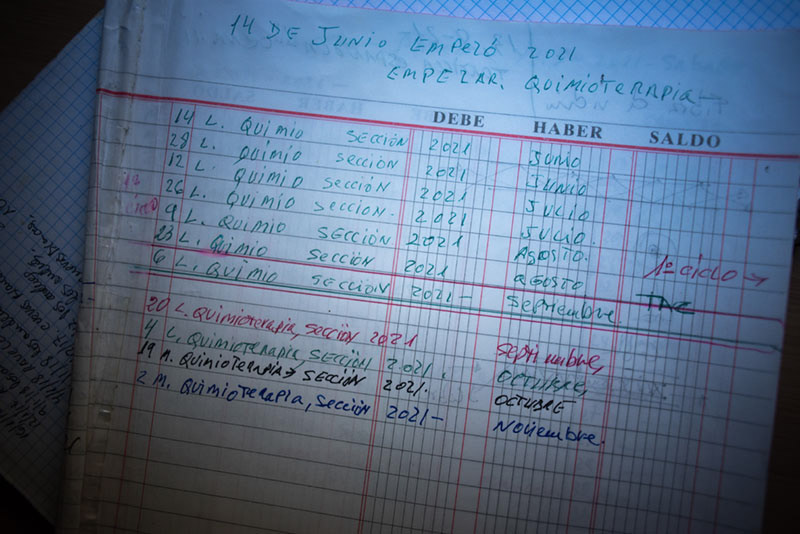 14 DE JUNIO EMPEZÓ 2021
EMPEZAR. QUIMIOTERAPIA
DEBE HABER SALDO
14 L. QUIMIO SECCIÓN 2021 JUNIO
28 L. QUIMIO SECCIÓN 2021 JUNIO
12 L. QUIMIO SECCIÓN 2021 JULIO
26 L. QUIMIO SECCIÓN. 2021 JULIO.
9 L. QUIMIO SECCIÓN 2021 AGOSTO.
23 L. QUIMIO SECCIÓN 2021 AGOSTO 1º CICLO →
6 L. QUIMIO SECCIÓN 2021- Septiembre TAC
20 L. QUIMIOTERAPIA, SECCIÓN 2021 Septiembre,
4 L. QUIMIOTERAPIA, SECCIÓN 2021. OCTUBRE,
19 M. QUIMIOTERAPIA, SECCIÓN 2021. OCTUBRE
2 M. QUIMIOTERAPIA, SECCIÓN 2021- Noviembre.